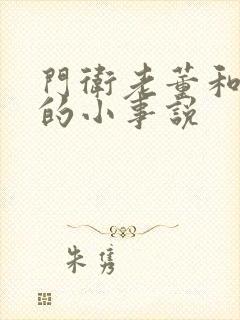 門衛老董和
的小事說
朱雋